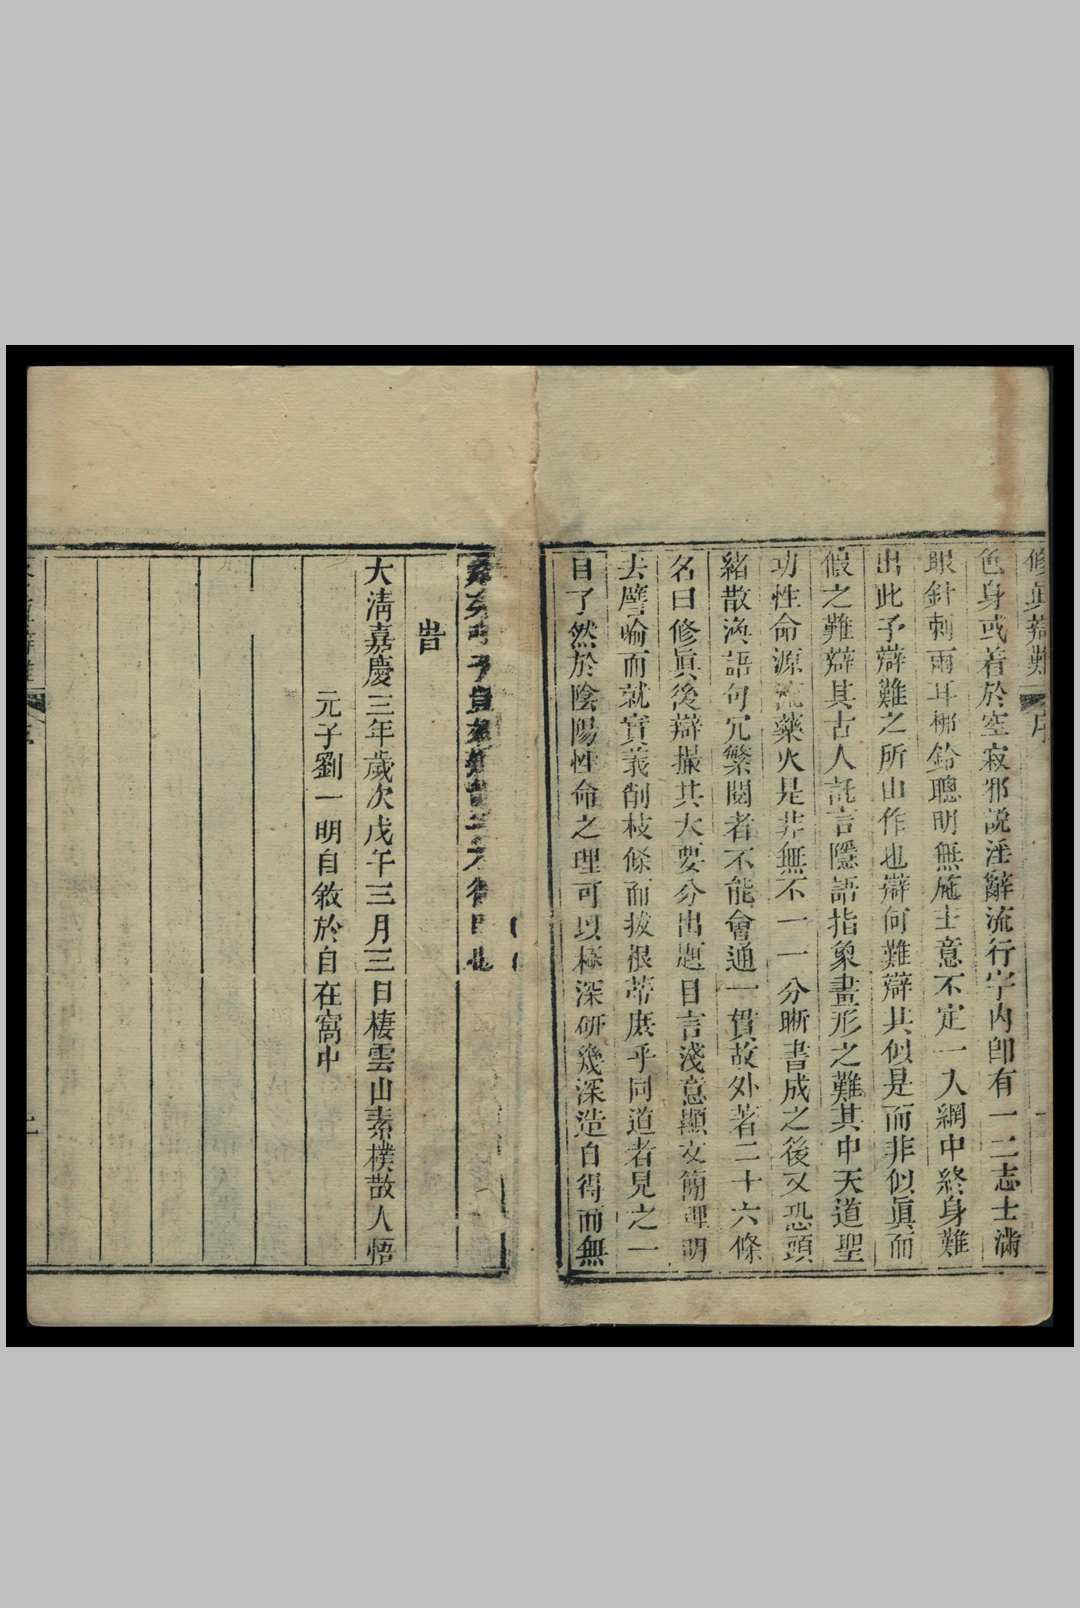 修眞辯難 序
色身或着於空寂邪說淫辭流行宇內卽有一二志士滿
眼針刺兩耳梆鈴聰明無施主意不定一入網中終身難
出此予辯難之所由作也辯何難辯其似是而非似眞而
假之難辯其古人託言隱語指象畫形之難其中天道聖
功性命源流藥火是非無不一一分晰書成之後又恐頭
緒散渙語句冗繁閱者不能會通一貫故外著二十六條
名曰修眞後辯撮其大要分出題目言淺意顯文簡理明
去譬喻而就實義削枝條而拔根蒂庶乎同道者見之一
目了然於陰陽性命之理可以極深硏幾深造自得而無
旹
大淸嘉慶三年歲次戊午三月三日棲雲山素樸散人悟
元子劉一明自敘於自在窩中